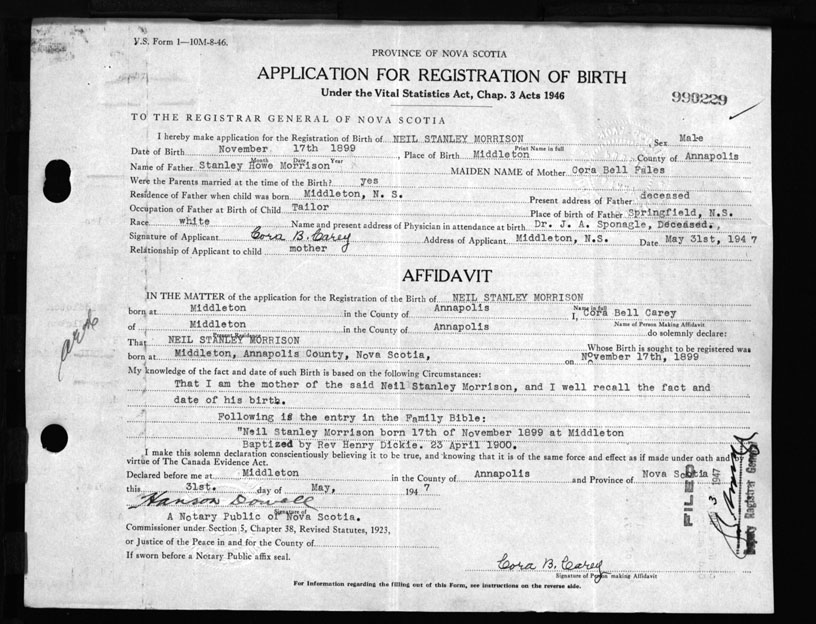 V.S. Form 1—10M-8-46.
PROVINCE OF NOVA SCOTIA
APPLICATION FOR REGISTRATION OF BIRTH
Under the Vital Statistics Act, Chap. 3 Acts 1946
990229
TO THE REGISTRAR GENERAL OF NOVA SCOTIA
I hereby make application for the Registration of Birth of NEIL STANLEY MORRISON, Sex Male
Print Name in full
Date of Birth November 17th 1899, Place of Birth Middleton County of Annapolis
Month Date Year
Name of Father Stanley Howe Morrison MAIDEN NAME of Mother Cora Bell Fales
Were the Parents married at the time of the Birth? yes
Residence of Father when child was born Middleton, N. S. Present address of Father deceased
Occupation of Father at Birth of Child Tailor Place of birth of Father Springfield, N.S.
Race white Name and present address of Physician in attendance at birth Dr. J. A. Sponagle, Deceased.
Signature of Applicant Cora B. Carey Address of Applicant Middleton, N.S. Date May 31st, 1947
Relationship of Applicant to child mother
AFFIDAVIT
IN THE MATTER of the application for the Registration of Birth of NEIL STANLEY MORRISON
Name in full
born at Middleton in the County of Annapolis I, Cora Bell Carey
Name of Person Making Affidavit
of Middleton in the County of Annapolis do solemnly declare:
That NEIL STANLEY MORRISON Whose Birth is sought to be registered was
born at Middleton, Annapolis County, Nova Scotia, on November 17th, 1899
My knowledge of the fact and date of such Birth is based on the following Circumstances:
That I am the mother of the said Neil Stanley Morrison, and I well recall the fact and
date of his birth.
Following is the entry in the Family Bible:
"Neil Stanley Morrison born 17th of November 1899 at Middleton
Baptized by Rev Henry Dickie. 23 April 1900.
I make this solemn declaration conscientiously believing it to be true, and knowing that it is of the same force and effect as if made under oath and by
virtue of The Canada Evidence Act.
Declared before me at Middleton in the County of Annapolis and Province of Nova Scotia
this 31st. day of May, 1947
Hanson Dowell
Signature of
A Notary Public of Nova Scotia.
Commissioner under Section 5, Chapter 38, Revised Statutes, 1923,
or Justice of the Peace in and for the County of
If sworn before a Notary Public affix seal.
Cora B. Carey
Signature of Person making Affidavit
For Information regarding the filling out of this Form, see instructions on the reverse side.
FILED
3 1947
Deputy Registrar General